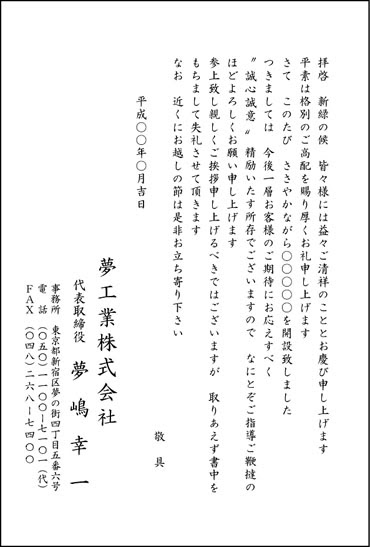 拝啓　新緑の候　皆々様には益々ご清祥のこととお慶び申し上げます
平素は格別のご高配を賜り厚くお礼申し上げます
さて　このたび　ささやかながら〇〇〇〇〇を開設致しました
つきましては　今後一層お客様のご期待にお応えすべく
〝誠心誠意〟精励いたす所存でございますので　なにとぞご指導ご鞭撻の
ほどよろしくお願い申し上げます
参上致し親しくご挨拶申し上げるべきではございますが　取りあえず書中を
もちまして失礼させて頂きます
なお　近くにお越しの節は是非お立ち寄り下さい
敬具
平成〇〇年〇月吉日
夢工業株式会社
代表取締役　夢嶋幸一
事務所　東京都新宿区夢の街四丁目五番六号
電話　（〇五〇）一一〇〇ー七一〇一（代）
ＦＡＸ　（〇四八）二六八ー七四〇〇